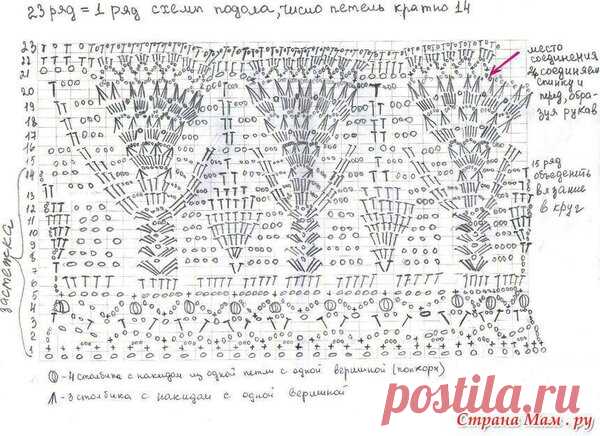 23 ряд = 1 ряд схемы подола, число петель кратно 14
23
22
21
20
19
18
17
16
15
14
13
12
11
10
9
8
7
6
5
4
3
2
1
застежка
место
соединения
соединяем
спинку и
пред, обра-
зуя рукав
15 ряд
объеденить
вязание
в круг
- 4 столбика с накидом из одной петли с одной вершиной (попкорн)
- 3 столбика с накидом с одной вершиной
postila.ru
Страна Мам . ру